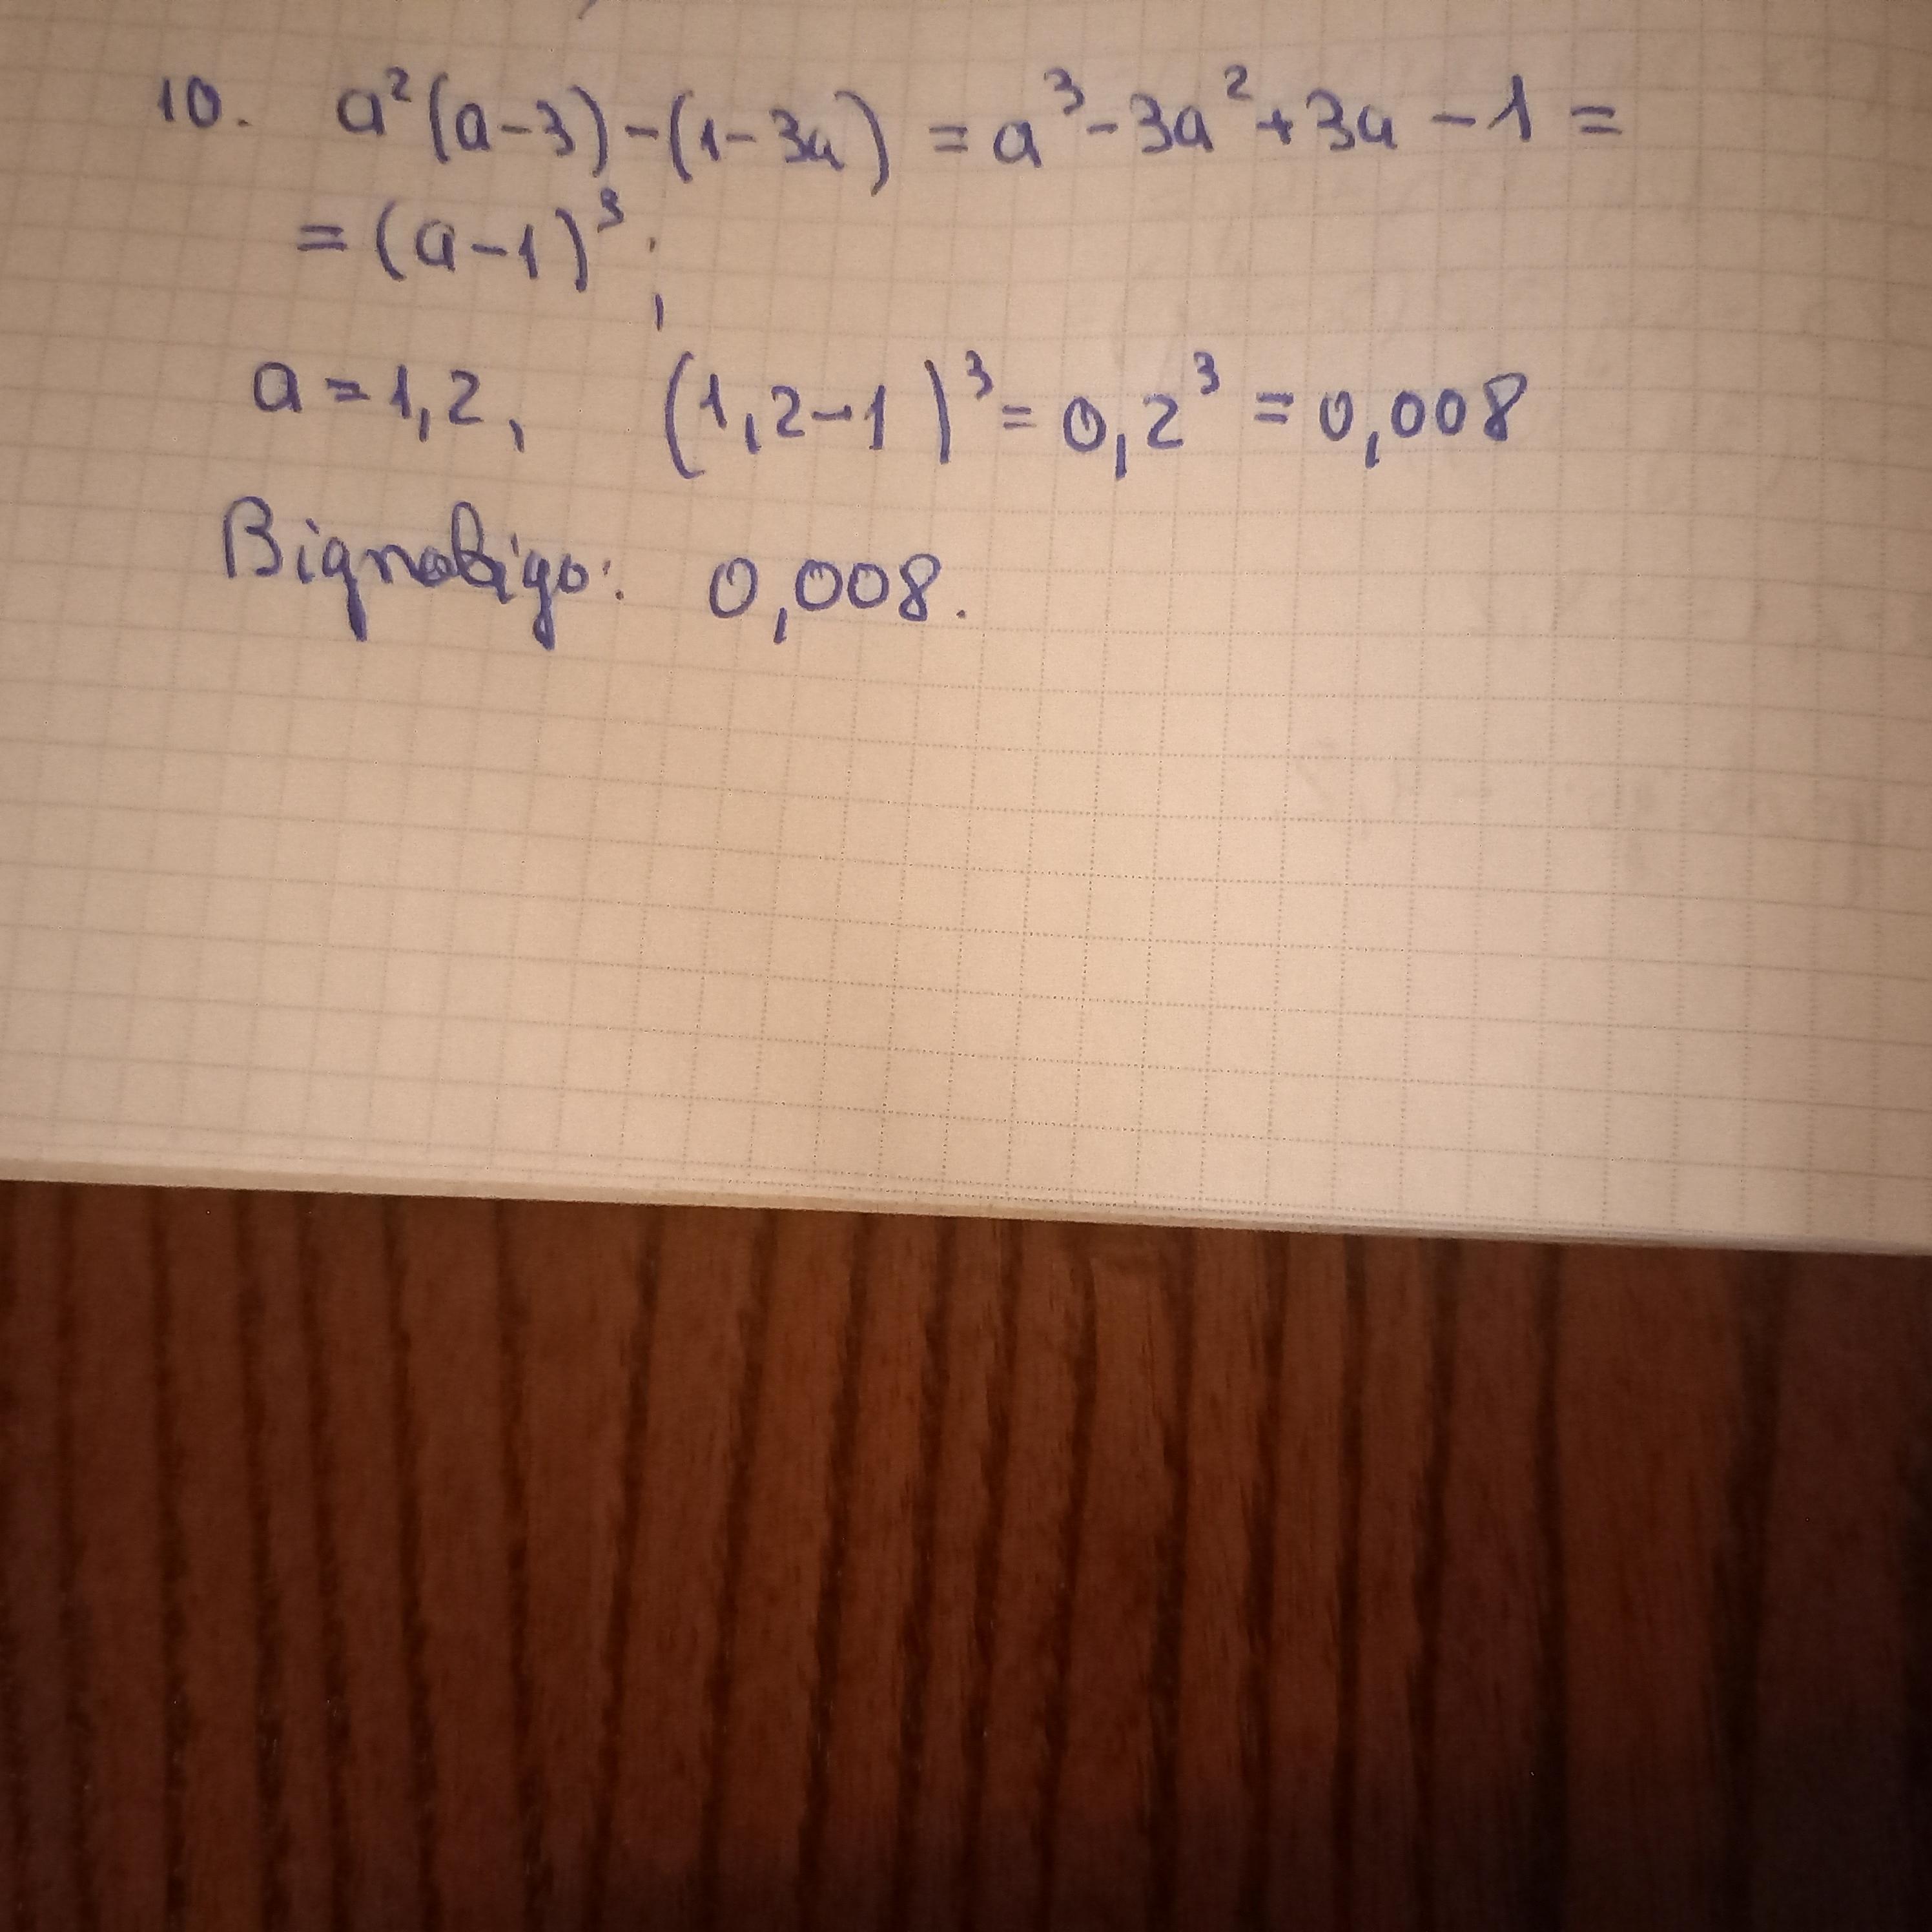 10. a²(a-3)-(1-3a) = a³-3a²+3a-1=
=(a-1)³;
a=1,2, (1,2-1)³=0,2³=0,008
Відповідь: 0,008.